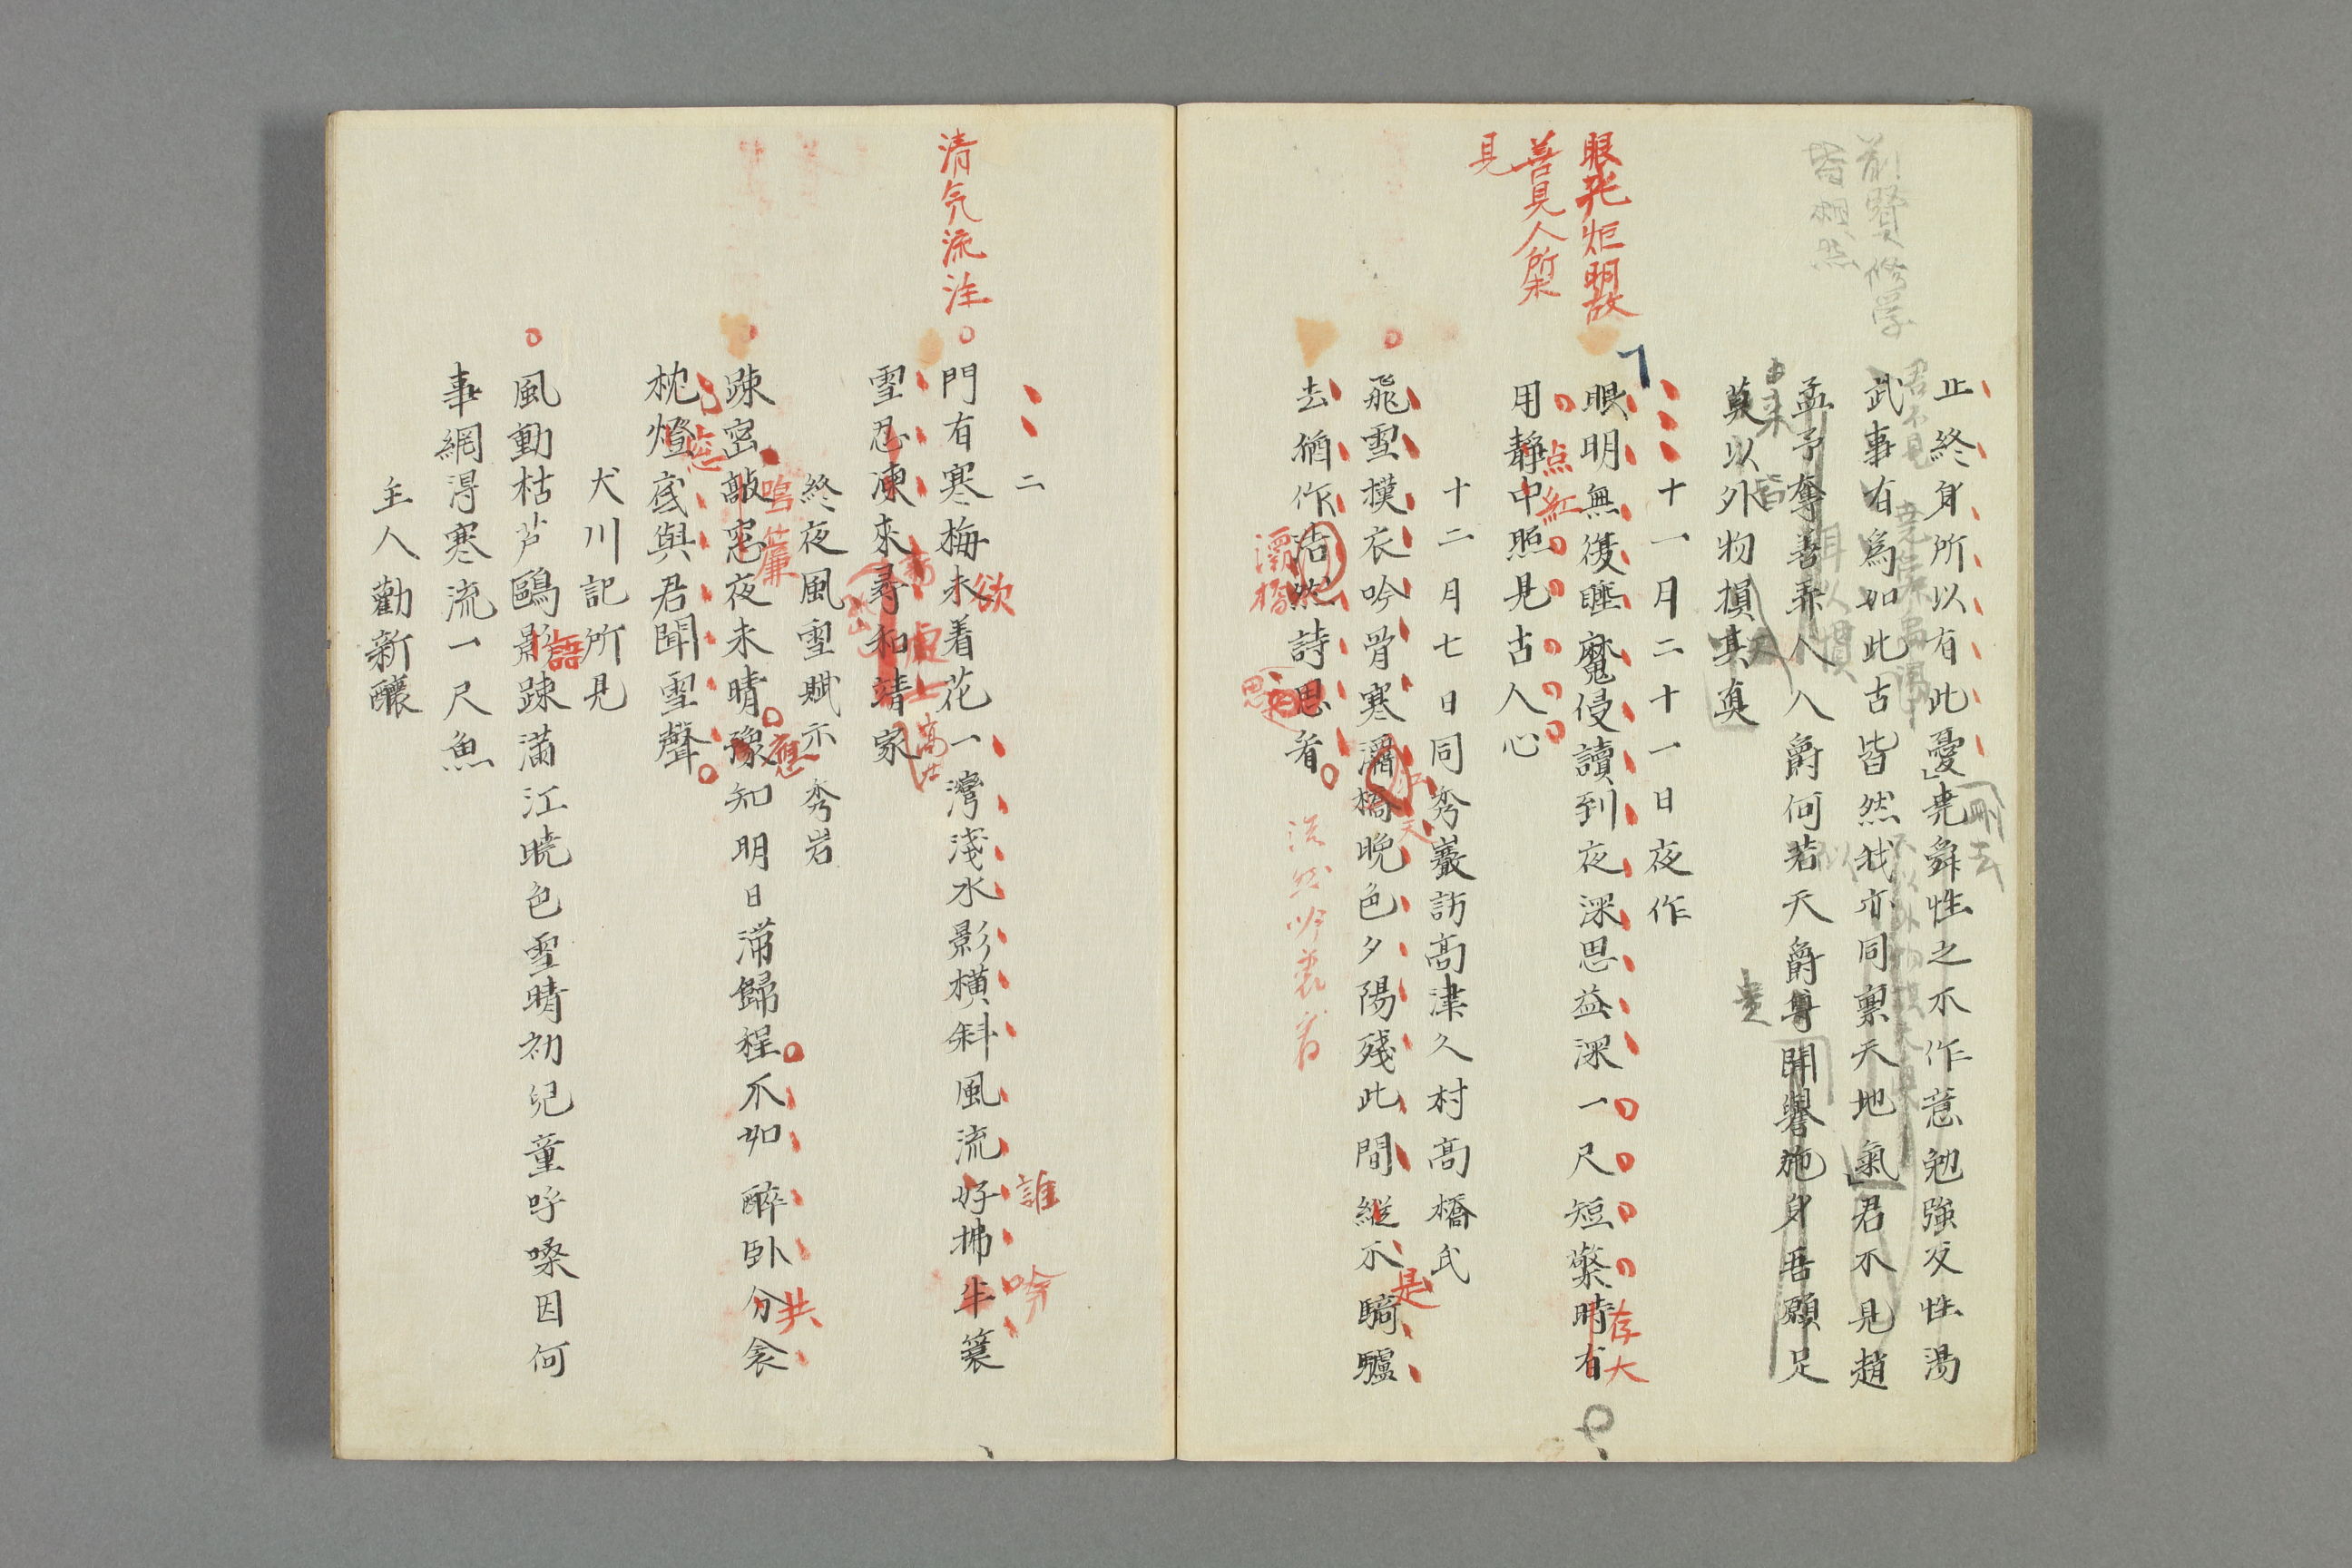 止終身所以有此憂尭舜性之不作意勉強反性湯
武事有爲如此古皆然我亦同禀天地氣君不見趙
孟予奪善弄人人爵何若天爵尊聞譽施身吾願足
莫以外物損其眞
十一月二十一日夜作
眼明無復睡魔侵讀到夜深思益深一尺短檠時有
用靜中照見古人心
十二月七日同秀巖訪髙津久村髙橋氏
飛雪撲衣吟骨寒灞橋晩色夕陽殘此間縦不騎驢
去猶作浩然詩思看
前賢修学
皆
刪去
眼光炬明故
善見人所未
見
点紅
存大
是
灞橋
浩然吟裏看
二
門有寒梅未着花一灣淺水影横斜風流好拂半簑
雪忍凍來尋和靖家
終夜風雪賦示秀岩
疎密敲窓夜未晴豫知明日滞歸程不如醉臥分衾
枕燈底與君聞雪聲
犬川記所見
風動枯芦鷗影疎滿江曉色雪晴初児童呼喚因何
事網得寒流一尺魚
主人勸新釀
清気流注
欲
誰
吟
高士
鳴簾
應
共
語